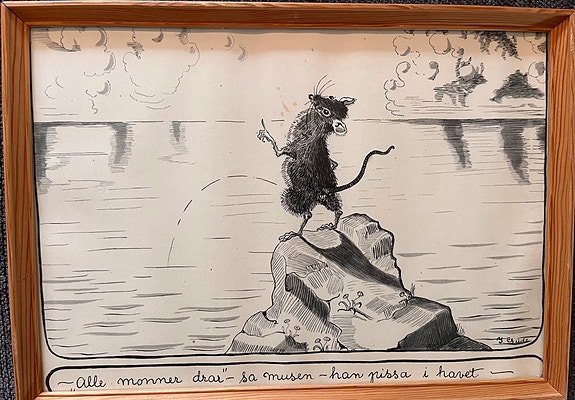 ~ "Alle monner drar" - sa musen - han pissa i havet -